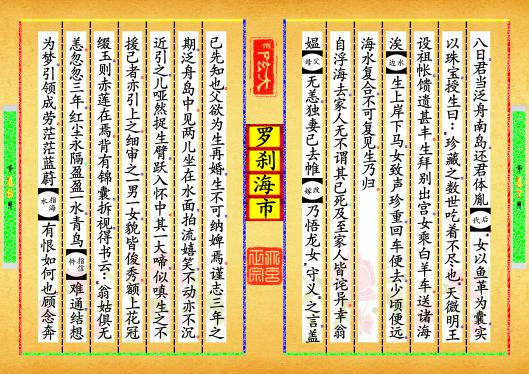 八日君当泛舟南岛还君体胤【后代】。女以鱼革为囊实
以珠宝授生曰：珍藏之数世吃着不尽也。天微明王
设祖帐馈遗甚丰生拜别出宫女乘白羊车送诸海
涘【水边】生上岸下马女致声珍重回车便去少顷便远
海水复合不可复见生乃归
自浮海去家人无不谓其已死及至家人皆诧异幸翁
媪【父母】无恙独妻已去帷【改嫁】乃悟龙女守义之言盖
罗刹海市
已先知也父欲为生再婚生不可纳婢焉谨志三年之
期泛舟岛中见两儿坐在水面拍流嬉笑不动亦不沉
近引之儿哑然捉生臂跃入怀中其一大啼似嗔生之不
援己者亦引上之细审之一男一女貌皆俊秀额上花冠
缀玉则赤莲在焉背有锦囊拆视得书云：翁姑俱无
恙忽忽三年红尘永隔盈盈一水青鸟【指信件】难通结想
为梦引领成劳茫茫蓝蔚【指海水】有恨如何也顾念奔